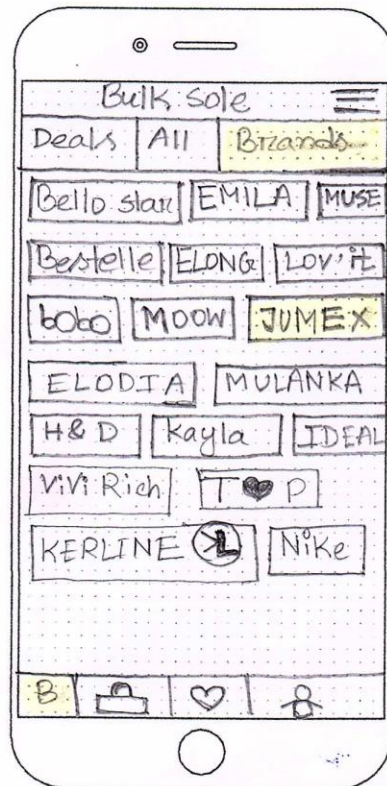 Bulk Sole
Deals All Brands
Bello star EMILA MUSE
Bestelle ELONG LOV'it
bobo MOOW JUMEX
ELODIA MULANKA
H & D Kayla IDEAL
ViVi Rich T♥P
KERLINE XL Nike
B